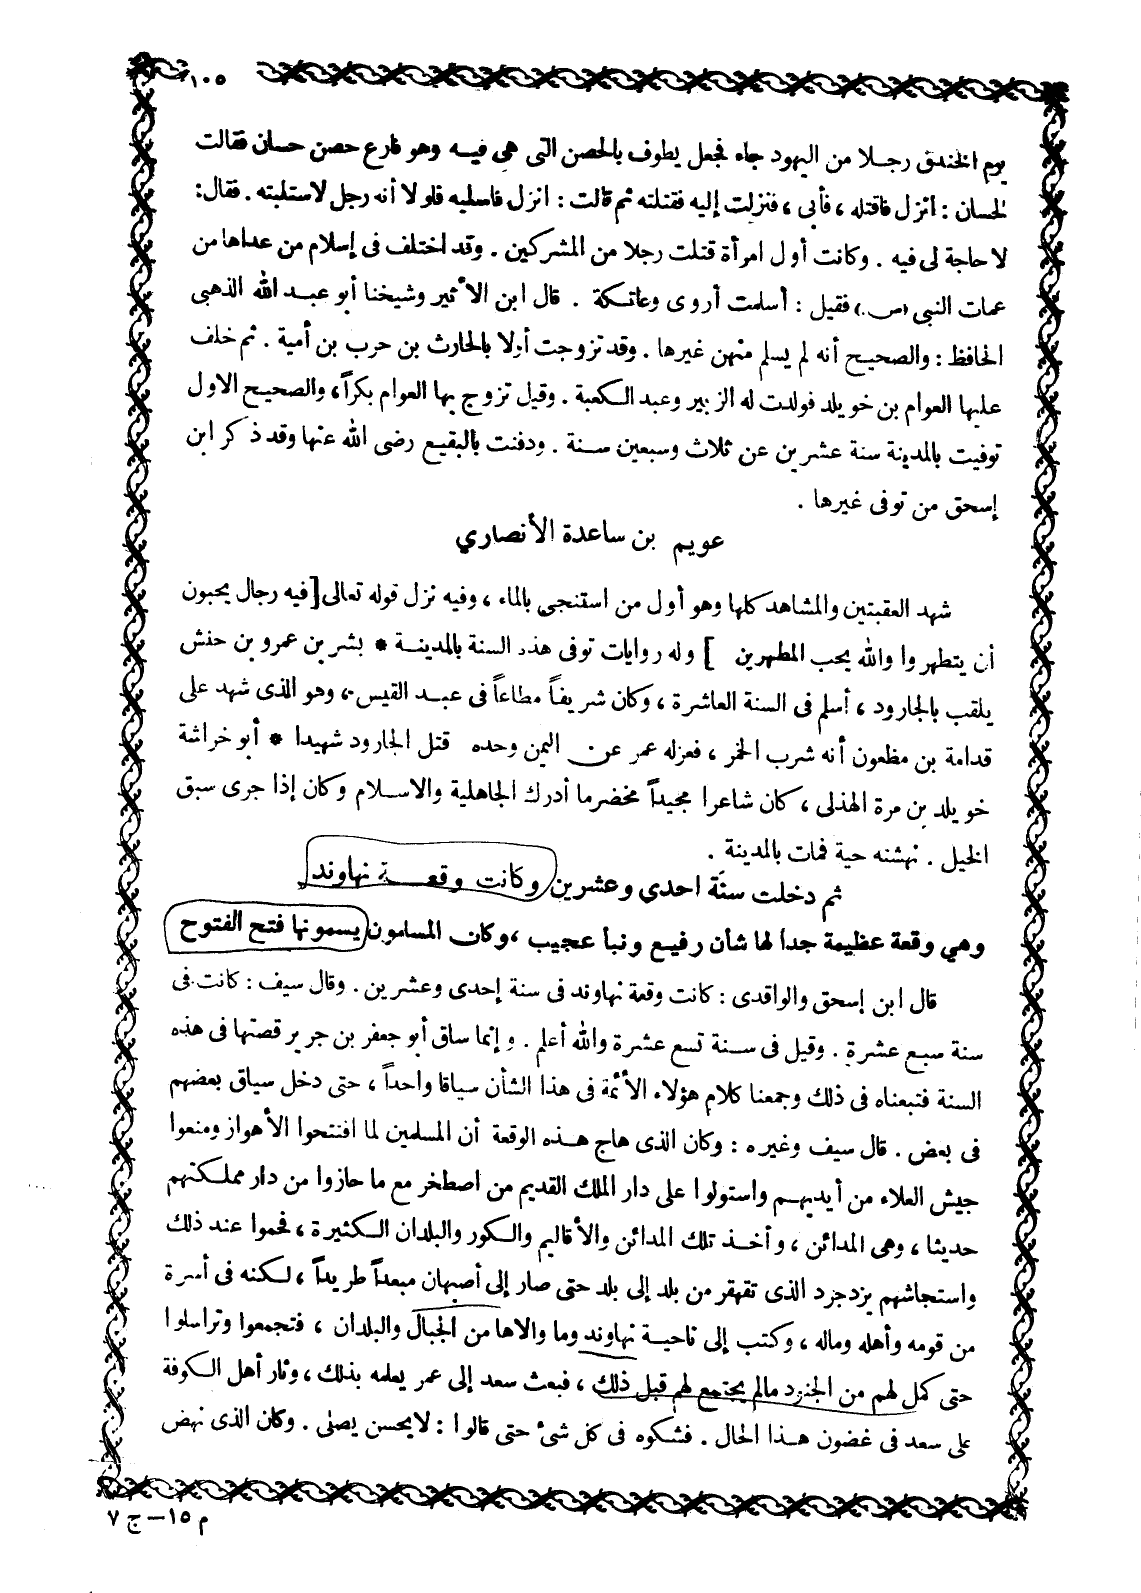 ١٠٥
يوم الخندق رجلا من اليهود جاء فجعل يطوف بالحصن التى هى فيه وهو فارع حصن حسان فقالت
لحسان : انزل فاقتله ، فأبى ، فنزلت إليه فقتلته ثم قالت : انزل فاسلبه فلولا أنه رجل لاستلبته . فقال:
لا حاجة لى فيه . وكانت أول امرأة قتلت رجلا من المشركين . وقد اختلف فى إسلام من عداها من
عمات النبى (س.) فقيل : أسلمت أروى وعاتكة . قال ابن الأثير وشيخنا أبو عبد الله الذهبى
الحافظ : والصحيح أنه لم يسلم منهن غيرها . وقد تزوجت أولا بالحارث بن حرب بن أمية . ثم خلف
عليها العوام بن خويلد فولدت له الزبير وعبد الكعبة . وقيل تزوج بها العوام بكراً، والصحيح الاول
توفيت بالمدينة سنة عشرين عن ثلاث وسبعين سنة . ودفنت بالبقيع رضى الله عنها وقد ذكر ابن
إسحق من توفى غيرها .
عويم بن ساعدة الأنصاري
شهد العقبتين والمشاهد كلها وهو أول من استنجى بالماء ، وفيه نزل قوله تعالى [فيه رجال يحبون
أن يتطهروا والله يحب المطهرين ] وله روايات توفى هذه السنة بالمدينة * بشر بن عمرو بن حنش
يلقب بالجارود ، أسلم فى السنة العاشرة ، وكان شريفاً مطاعاً فى عبد القيس ، وهو الذى شهد على
قدامة بن مظعون أنه شرب الخمر ، فعزله عمر عن اليمن وحده قتل الجارود شهيدا * أبو خراشة
خويلد بن مرة الهذلى ، كان شاعرا مجيداً مخضرما أدرك الجاهلية والاسلام وكان إذا جرى سبق
الخيل . نهشته حية فمات بالمدينة .
ثم دخلت سنة احدى وعشرين وكانت وقعة نهاوند
وهي وقعة عظيمة جدا لها شأن رفيع ونبأ عجيب ، وكان المسلمون يسمونها فتح الفتوح
قال ابن إسحق والواقدى : كانت وقعة نهاوند فى سنة إحدى وعشرين . وقال سيف : كانت فى
سنة سبع عشرة . وقيل فى سنة تسع عشرة والله أعلم . وإنما ساق أبو جعفر بن جرير قصتها فى هذه
السنة فتبعناه فى ذلك وجمعنا كلام هؤلاء الأئمة فى هذا الشأن سياقا واحداً ، حتى دخل سياق بعضهم
فى بعض . قال سيف وغيره : وكان الذى هاج هذه الوقعة أن المسلمين لما افتتحوا الأهواز ومنعوا
جيش العلاء من أيديهم واستولوا على دار الملك القديم من اصطخر مع ما حازوا من دار مملكتهم
حديثا ، وهى المدائن ، وأخذ تلك المدائن والأقاليم والكور والبلدان الكثيرة ، فحموا عند ذلك
واستجاشهم يزدجرد الذى تقهقر من بلد إلى بلد حتى صار إلى أصبهان مبعداً طريداً ، لكنه فى أسرة
من قومه وأهله وماله ، وكتب إلى ناحية نهاوند وما والاها من الجبال والبلدان ، فتجمعوا وتراسلوا
حتى كمل لهم من الجنود مالم يجتمع لهم قبل ذلك ، فبعث سعد إلى عمر يعلمه بذلك ، وثار أهل الكوفة
على سعد فى غضون هذا الحال . فشكوه فى كل شئ حتى قالوا : لايحسن يصلى . وكان الذى نهض
م ١٥ – ج ٧